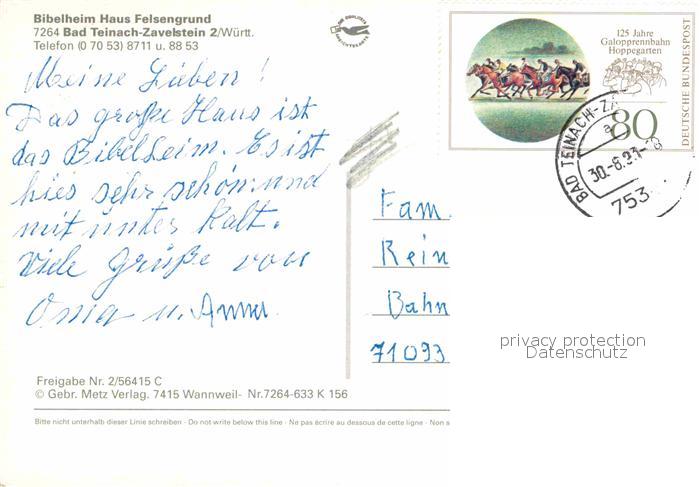 Bibelheim Haus Felsengrund
7264 Bad Teinach-Zavelstein 2/Württ.
Telefon (0 70 53) 8711 u. 88 53
125 Jahre
Galopprennbahn
Hoppegarten
80
DEUTSCHE BUNDESPOST
BAD TEINACH-ZA
a
30.-8.93-18
753
Meine Lieben!
Das große Haus ist
das Bibelheim. Es ist
hier sehr schön und
mit unter kalt.
Viele Grüße von
Oma u. Anna.
Fam.
Rein
Bahn
71093
privacy protection
Datenschutz
Freigabe Nr. 2/56415 C
© Gebr. Metz Verlag. 7415 Wannweil- Nr.7264-633 K 156
Bitte nicht unterhalb dieser Linie schreiben - Do not write below this line - Ne pas écrire au dessous de cette ligne - Non s